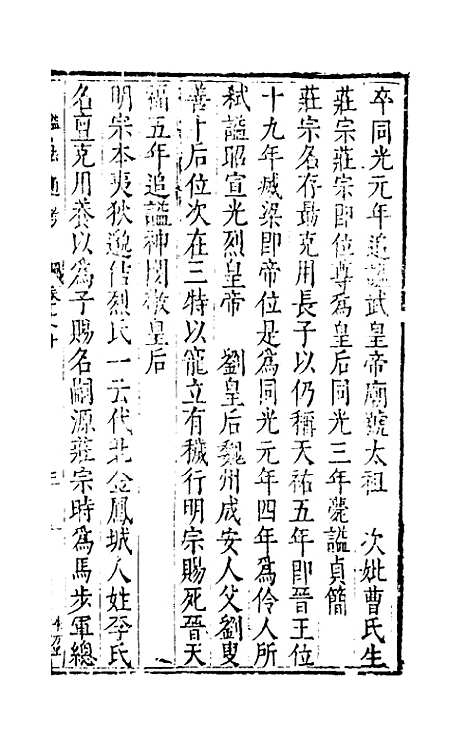 卒同光元年追謚武皇帝廟號太祖　次妣曹氏生
莊宗莊宗即位尊爲皇后同光三年薨謚貞簡
莊宗名存勗克用長子以仍稱天祐五年即晉王位
十九年滅梁即帝位是爲同光元年四年爲伶人所
弒謚昭宣光烈皇帝　劉皇后魏州成安人父劉叟
善卜后位次在三特以寵立有穢行明宗賜死晉天
福五年追謚神閔敬皇后
明宗本夷狄邈佶烈氏一云代北金鳳城人姓李氏
名亶克用養以爲子賜名嗣源莊宗時爲馬步軍總
謚法通考